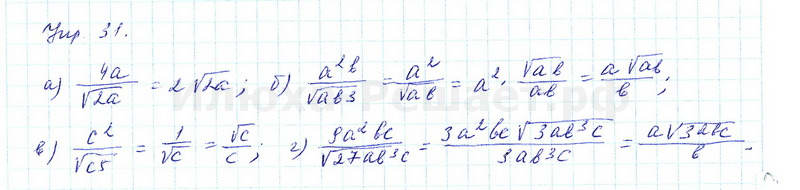 Упр. 31.
а) 4a/√2a = 2√2a; б) a²b/√ab3 = a²/√ab = a² · √ab/ab = a√ab/b;
в) c²/√c5 = 1/√c = √c/c; г) 9a²bc/√27ab³c = 3a²bc√3ab³c/3ab³c = a√3abc/b.